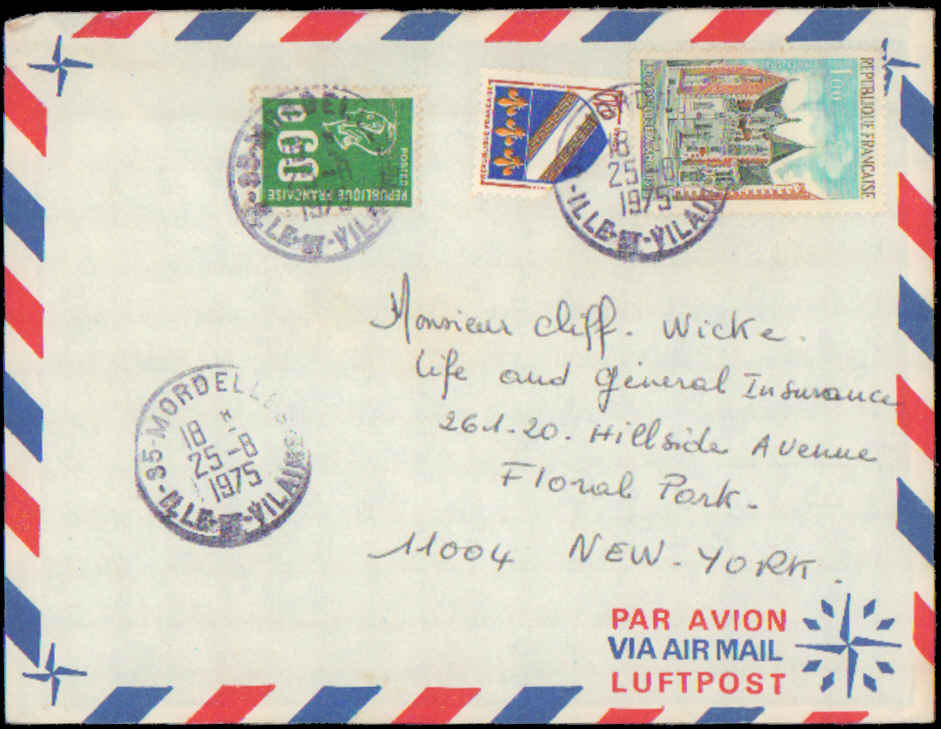 REPUBLIQUE FRANÇAISE
0.60
POSTES
REPUBLIQUE FRANCAISE
0,10
REPUBLIQUE FRANÇAISE
1,00
1975
ILLE-ET-VILAI
25
1975
ILLE-ET-VILAI
35-MORDELLES
18 H
25-8
1975
-ILLE-ET-VILAINE
Monsieur Cliff. Wicke.
Life and Général Insurance
261-20. Hillside Avenue
Floral Park.
11004 NEW-YORK.
PAR AVION
VIA AIR MAIL
LUFTPOST